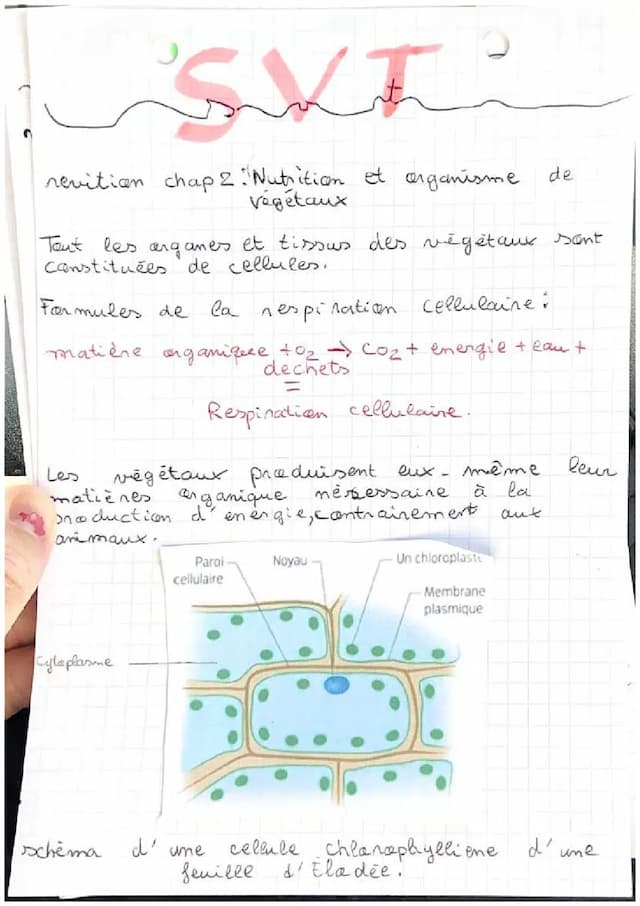 SVT
revition chap 2 : Nutrition et organisme de
végétaux
Tout les organes et tissus des végétaux sont
constituées de cellules.
Formules de la respiration cellulaire :
matière organique + O2 → CO2 + energie + eau +
dechets
=
Respiration cellulaire.
Les végétaux produisent eux-même leur
matières organique nécessaire à la
production d'energie, contrairement aux
animaux.
Paroi
cellulaire
Noyau
Un chloroplaste
Membrane
plasmique
Cytoplasme
schéma d'une cellule chlorophylliene d'une
feuille d'Elodée.